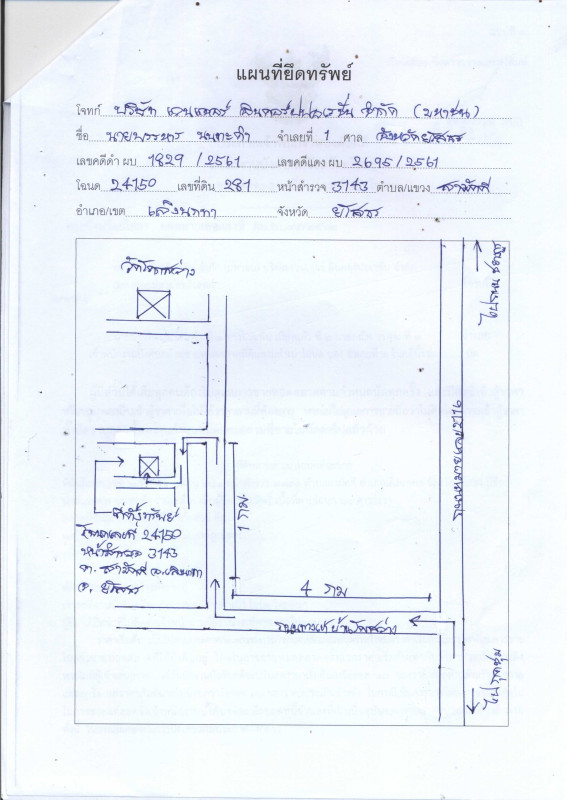 แผนที่ยึดทรัพย์
โจทก์ บริษัท เจนเนอรัล อินเตอร์ปปเรชั่น จำกัด (มหาชน)
ชื่อ นายพรหาร จำเลยที่ 1 ศาล จังหวัดยโสธร
เลขคดีดำ ผบ 1829 /2561 เลขคดีแดง ผบ 2695/2561
โฉนด 24150 เลขที่ดิน 281 หน้าสำรวจ 3143 ตำบล/แขวง สามัคคี
อำเภอ/เขต เลิงนกทา จังหวัด ยโสธร
ไปถนน
ถนนหมายเลข 2116
1 กม.
ที่ตั้งทรัพย์
โฉนดเลขที่ 24150
หน้าสำรวจ 3143
ต. สามัคคี อ.เลิงนกทา
จ. ยโสธร
4 กม
ถนนทางเข้าบ้าน
ไปกุดชุม